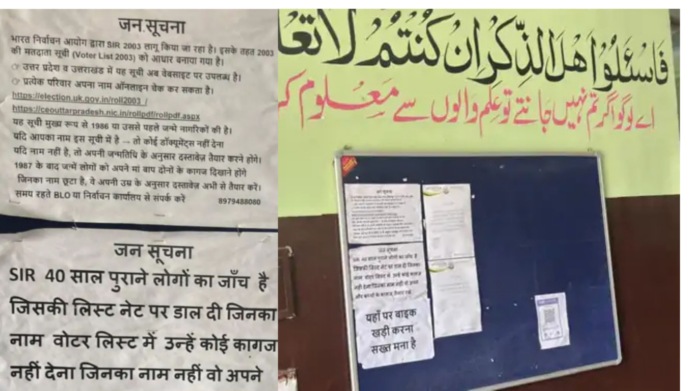 जन सूचना
भारत निर्वाचन आयोग द्वारा SIR 2003 लागू किया जा रहा है। इसके तहत 2003
की मतदाता सूची (Voter List 2003) को आधार बनाया गया है।
उत्तर प्रदेश व उत्तराखण्ड में यह सूची अब वेबसाइट पर उपलब्ध है।
प्रत्येक परिवार अपना नाम ऑनलाइन चेक कर सकता है।
https://election.uk.gov.in/roll2003 /
https://ceouttarpradesh.nic.in/rollpdf/rollpdf.aspx
यह सूची मुख्य रूप से 1986 या उससे पहले जन्मे नागरिकों की है।
यदि आपका नाम इस सूची में है → तो कोई डॉक्यूमेंट्स नहीं देना
यदि नाम नहीं है, तो अपनी जन्मतिथि के अनुसार दस्तावेज़ तैयार करने होंगे।
1987 के बाद जन्मे लोगों को अपने मां बाप दोनों के कागज दिखाने होंगे
जिनका नाम छूटा है, वे अपनी उम्र के अनुसार दस्तावेज़ अभी से तैयार करें।
समय रहते BLO या निर्वाचन कार्यालय से संपर्क करें 8979488080
जन सूचना
SIR 40 साल पुराने लोगों का जाँच है
जिसकी लिस्ट नेट पर डाल दी जिनका
नाम वोटर लिस्ट में उन्हें कोई कागज
नहीं देना जिनका नाम नहीं वो अपने
فاسئلوا اهل الذكر ان كنتم لا تعا
اے لوگو اگر تم نہیں جانتے تو علم والوں سے معلوم کر
जन सूचना
जन सूचना
SIR 40 साल पुराने लोगों का जाँच है
जिसकी लिस्ट नेट पर डाल दी जिनका
नाम वोटर लिस्ट में उन्हें कोई कागज
नहीं देना जिनका नाम नहीं वो अपने
यहाँ पर बाइक
खड़ी करना
सख्त मना है